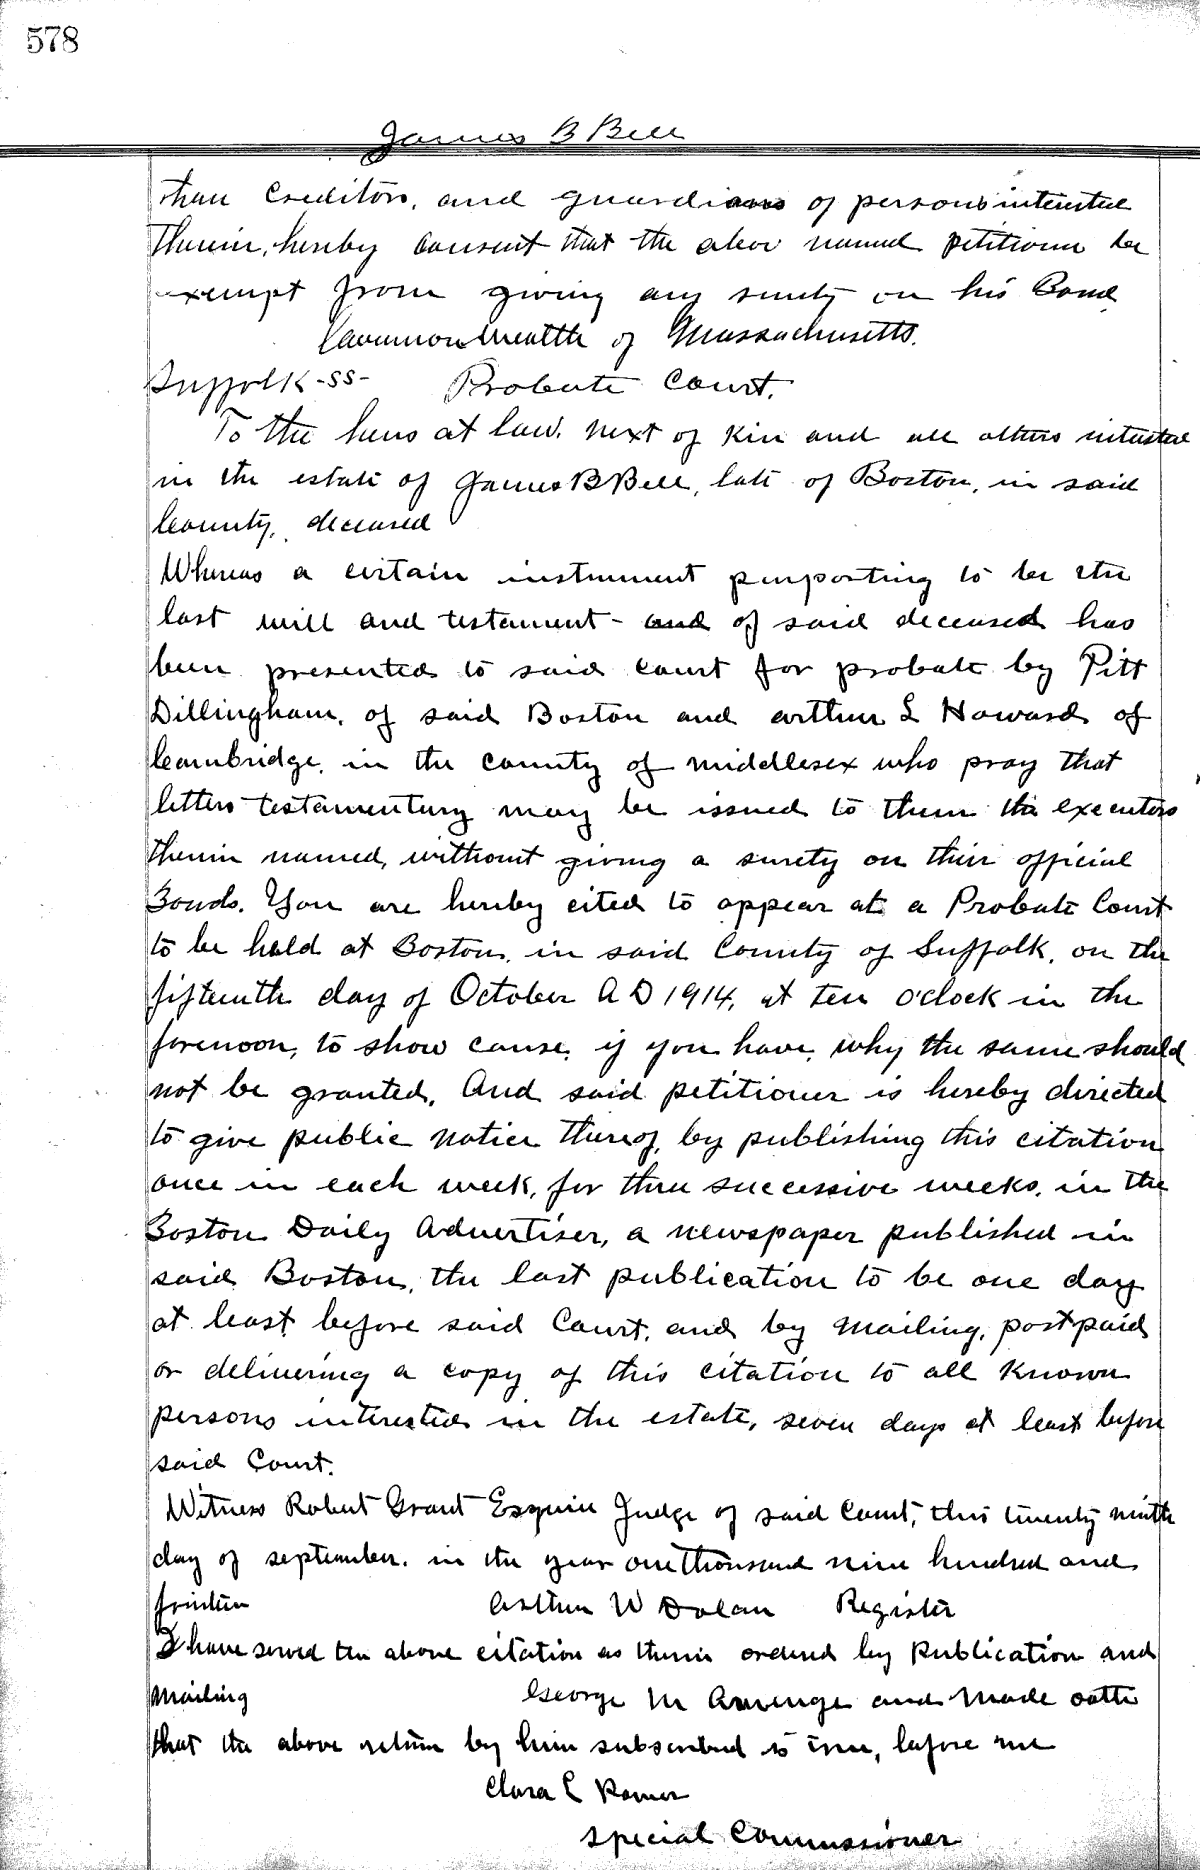 578
James B Bell
than Creditors, and guardians of persons interested
Therein, hereby consent that the above named petitioner be
exempt from giving any surety on his Bond
Commonwealth of Massachusetts.
Suffolk -ss- Probate Court.
To the heirs at law. next of Kin and all others interested
in the estate of James B Bell, late of Boston, in said
County, deceased
Whereas a certain instrument purporting to be the
last will and testament - and of said deceased has
been presented to said court for probate by Pitt
Dillingham, of said Boston and arthur L Howard of
Cambridge, in the county of middlesex who pray that
letters testamentary may be issued to them the executors
therein named, without giving a surety on their official
Bonds. You are hereby cited to appear at a Probate Court
to be held at Boston, in said County of Suffolk, on the
fifteenth day of October A D 1914, at ten o'clock in the
forenoon, to show cause, if you have, why the same should
not be granted, And said petitioner is hereby directed
to give public notice thereof, by publishing this citation
once in each week, for three successive weeks, in the
Boston Daily Advertiser, a newspaper published in
said Boston, the last publication to be one day
at least before said Court, and by mailing, postpaid
or delivering a copy of this citation to all known
persons interested in the estate, seven days at least before
said Court.
Witness Robert Grant Esquire Judge of said Court, this twenty ninth
day of september. in the year one thousand nine hundred and
fourteen Arthur W Dolan Register
I have served the above citation as therein ordered by publication and
mailing George M Amerige and made oath
that the above return by him subscribed is true, before me
Clara L
Special Commissioner